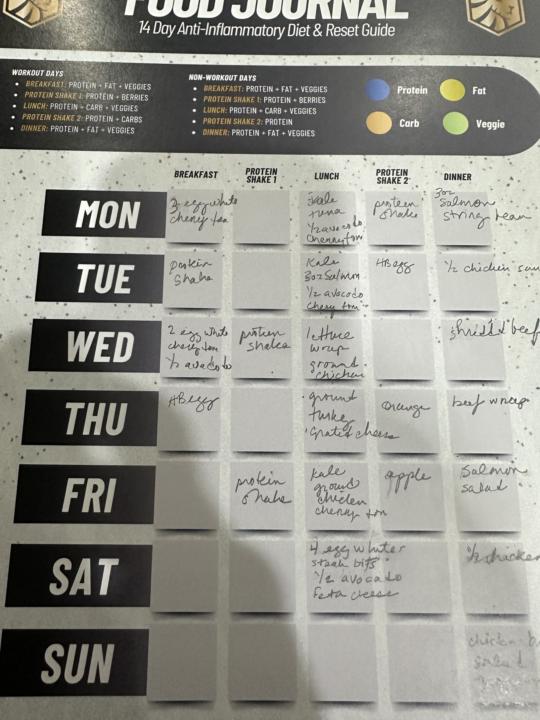 FOOD JOURNAL
14 Day Anti-Inflammatory Diet & Reset Guide
WORKOUT DAYS
• BREAKFAST: PROTEIN + FAT + VEGGIES
• PROTEIN SHAKE 1: PROTEIN + BERRIES
• LUNCH: PROTEIN + CARB + VEGGIES
• PROTEIN SHAKE 2: PROTEIN + CARBS
• DINNER: PROTEIN + FAT + VEGGIES
NON-WORKOUT DAYS
• BREAKFAST: PROTEIN + FAT + VEGGIES
• PROTEIN SHAKE 1: PROTEIN + BERRIES
• LUNCH: PROTEIN + CARB + VEGGIES
• PROTEIN SHAKE 2: PROTEIN
• DINNER: PROTEIN + FAT + VEGGIES
Protein
Fat
Carb
Veggie
BREAKFAST
PROTEIN
SHAKE 1
LUNCH
PROTEIN
SHAKE 2
DINNER
MON
egg white
cherry tom
kale
tuna
1/2 avocado
cherry tom
protein
shake
3oz
Salmon
string bean
TUE
protein
Shake
Kale
3oz Salmon
1/2 avocado
cherry tom
HB egg
1/2 chicken
WED
2 egg white
cherry tom
1/2 avacado
protein
shake
lettuce
wrap
ground
chicken
beef
THU
HB egg
ground
turkey
grated cheese
orange
beef wrap
FRI
protein
shake
kale
ground
chicken
cherry tom
apple
Salmon
salad
SAT
4 egg whites
steak bits
1/2 avocado
feta cheese
1/2 chicken
SUN
chicken
salad